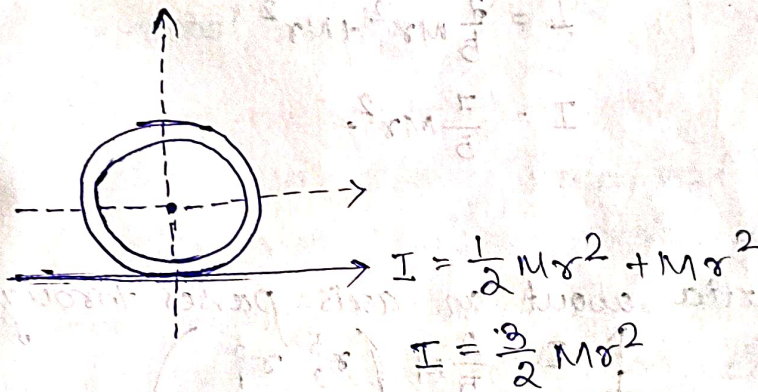 I = 1/2 Mr² + Mr²
I = 3/2 Mr²